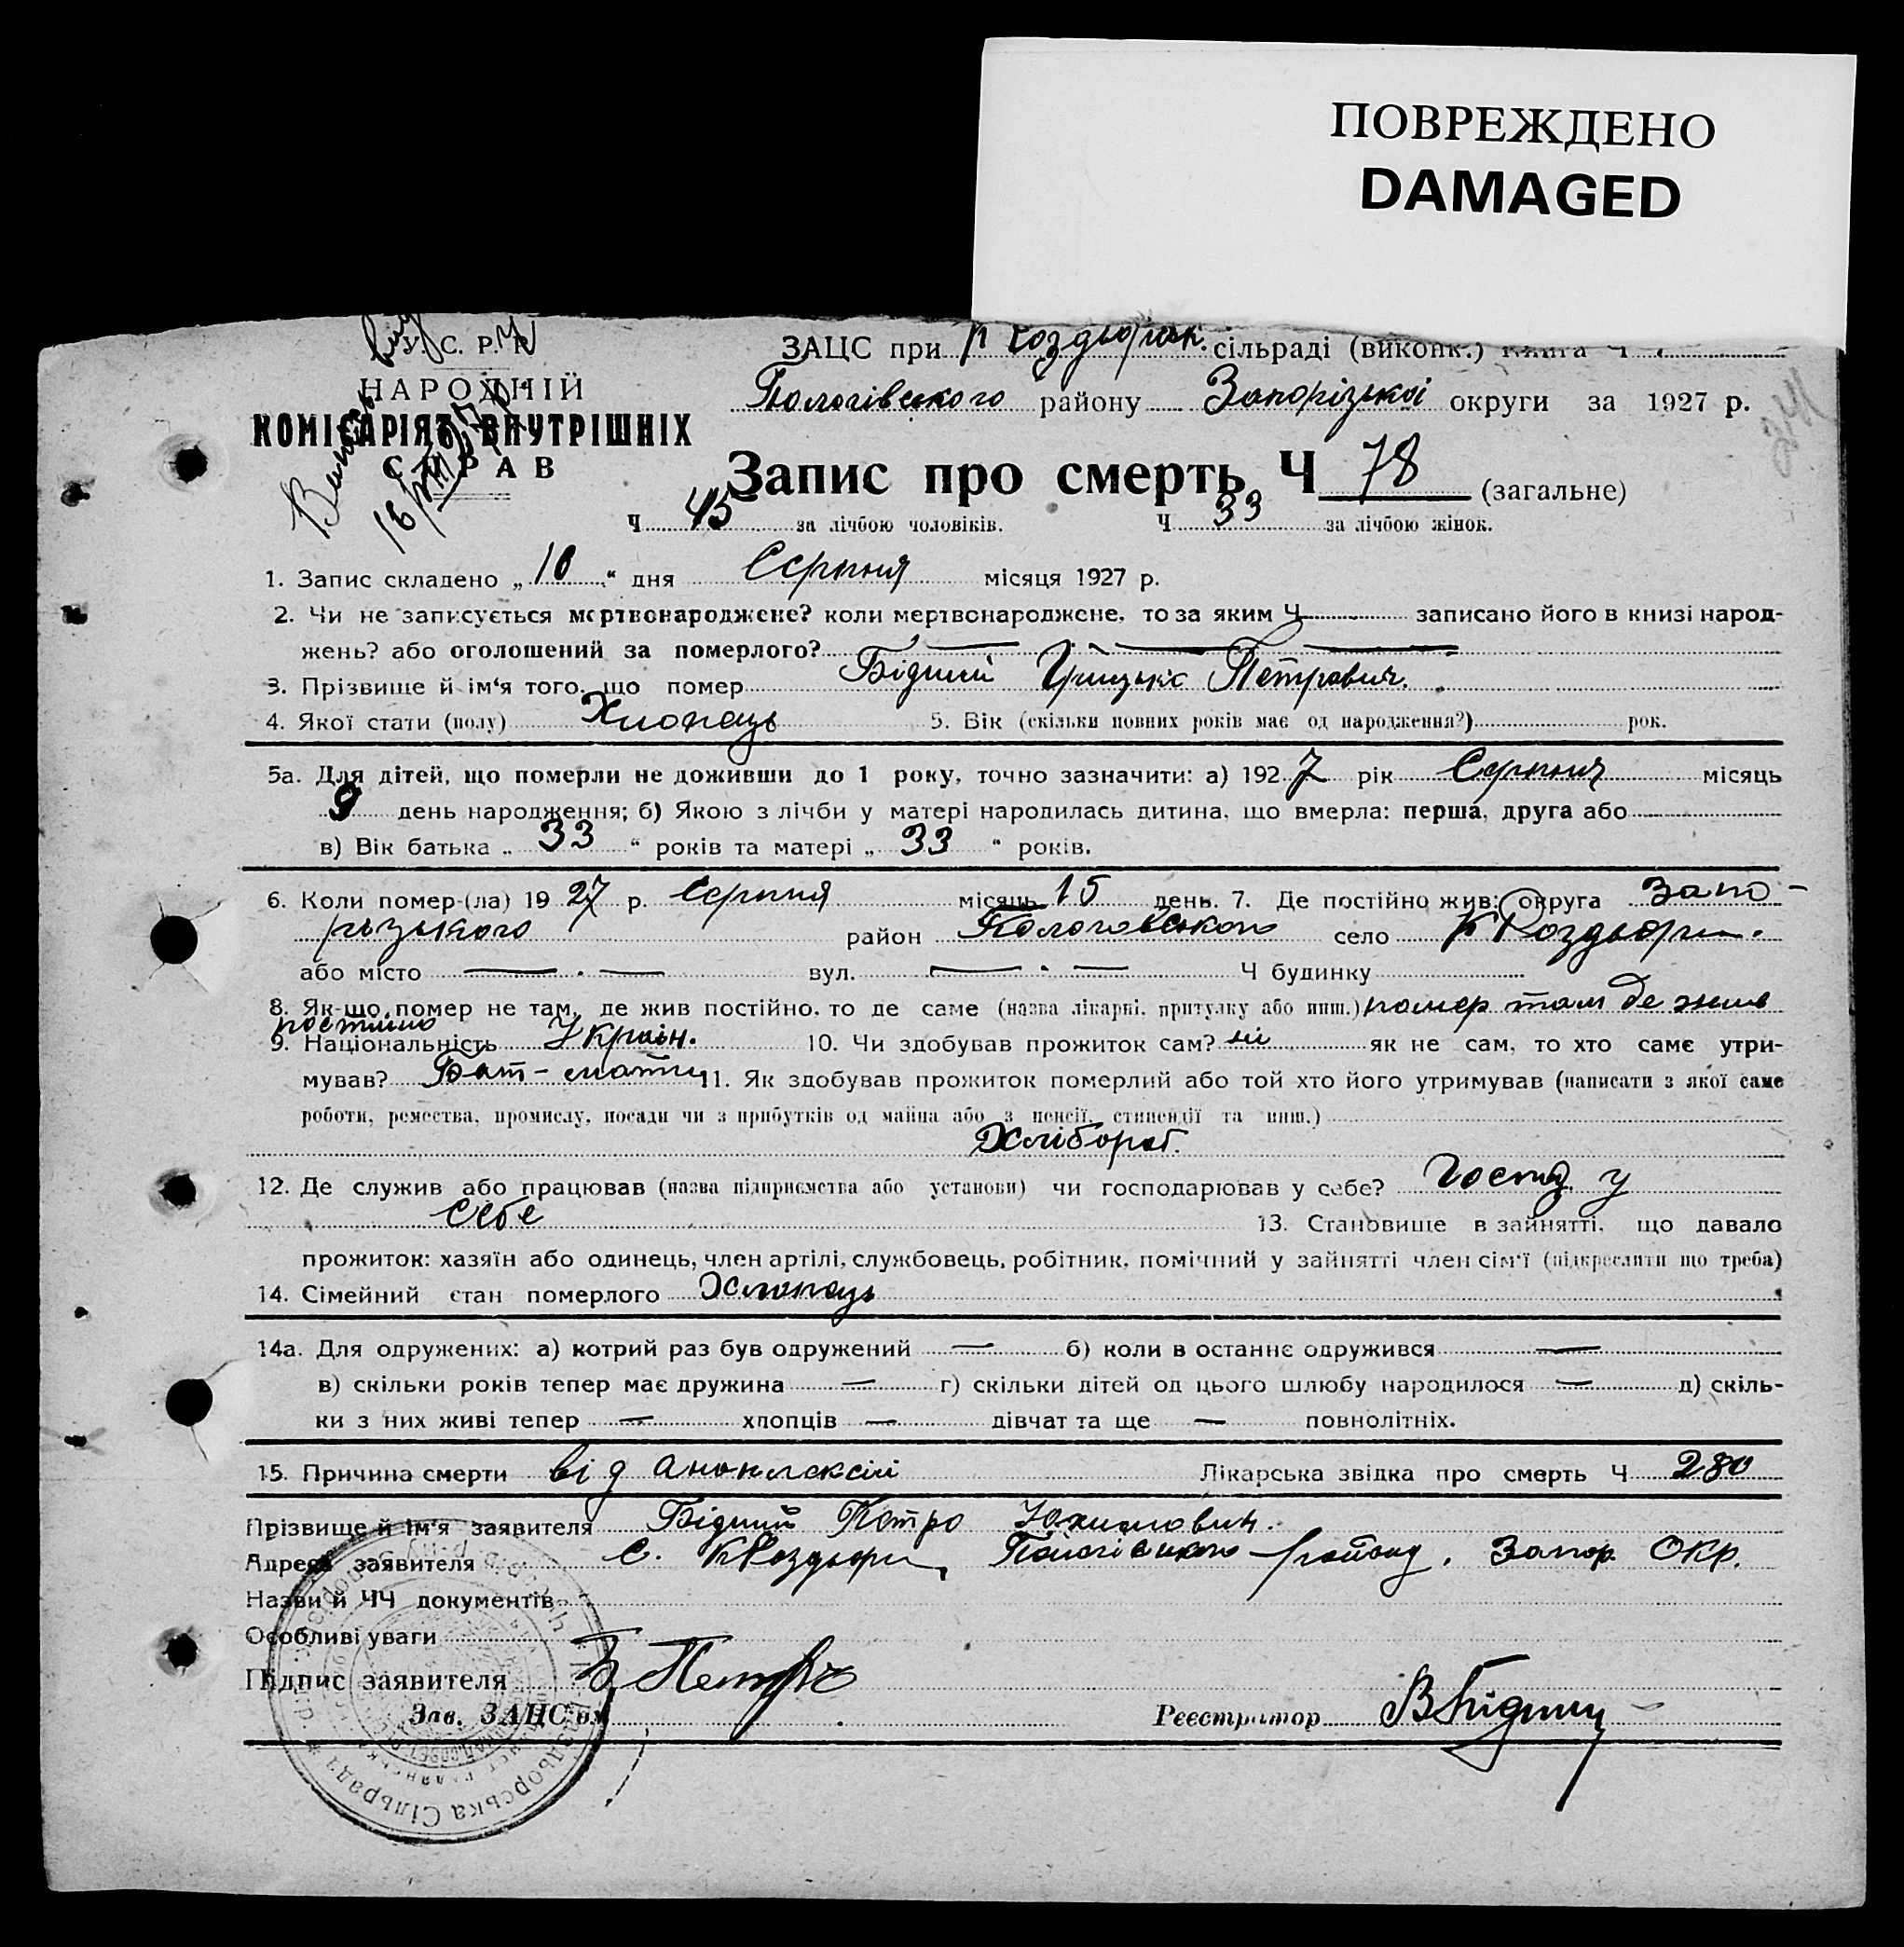 ПОВРЕЖДЕНО
DAMAGED
У. С. Р. Р.
ЗАЦС при К Роздорськ. сільраді (виконк.) книга Ч
НАРОДНІЙ
Пологівського району Запорізької округи за 1927 р.
КОМІСАРІЯТ ВНУТРІШНІХ
СПРАВ
Запис про смерть Ч 78 (загальне)
Ч 45 за лічбою чоловіків. Ч 33 за лічбою жінок.
1. Запис складено „ 16 “ дня Серпня місяця 1927 р.
2. Чи не записується мертвонароджене? коли мертвонароджене, то за яким Ч записано його в книзі народ-
жень? або оголошений за померлого?
3. Прізвище й ім‘я того, що помер Бідний Грицько Петрович.
4. Якої стати (полу) Хлопець 5. Вік (скільки повних років має од народження?) рок.
5а. Для дітей, що померли не доживши до 1 року, точно зазначити: а) 1927 рік Серпня місяць
9 день народження; б) Якою з лічби у матері народилась дитина, що вмерла: перша, друга або
в) Вік батька „ 33 “ років та матері „ 33 “ років.
6. Коли помер-(ла) 1927 р. Серпня місяць 15 день. 7. Де постійно жив: округа Запо-
різького район Пологовського село К Роздори.
або місто — . — вул. — . — Ч будинку
8. Як-що помер не там, де жив постійно, то де саме (назва лікарні, притулку або инш.) помер там де жив
постійно
9. Національність Україн. 10. Чи здобував прожиток сам? ні як не сам, то хто саме утри-
мував? Бат-мати 11. Як здобував прожиток померлий або той хто його утримував (написати з якої саме
роботи, ремества, промислу, посади чи з прибутків од майна або з пенсії, стипендії та инш.)
Хлібороб.
12. Де служив або працював (назва підприємства або установи) чи господарював у себе? Господ. у
себе 13. Становище в зайнятті, що давало
прожиток: хазяїн або одинець, член артілі, службовець, робітник, помічний у зайнятті член сім‘ї (підкреслити що треба)
14. Сімейний стан померлого Хлопець
14а. Для одружених: а) котрий раз був одружений — б) коли в останнє одружився —
в) скільки років тепер має дружина — г) скільки дітей од цього шлюбу народилося — д) скіль-
ки з них живі тепер — хлопців — дівчат та ще — повнолітніх.
15. Причина смерти від апоплексії Лікарська звідка про смерть Ч 280
Прізвище й ім‘я заявителя Бідний Петро Юхимович.
Адреса заявителя с. КРоздори, Пологівського району, Запор. Окр.
Назви й ЧЧ документів
Особливі уваги
Підпис заявителя Б Петро
Зав. ЗАЦС'ом
Реєстратор ВБідний